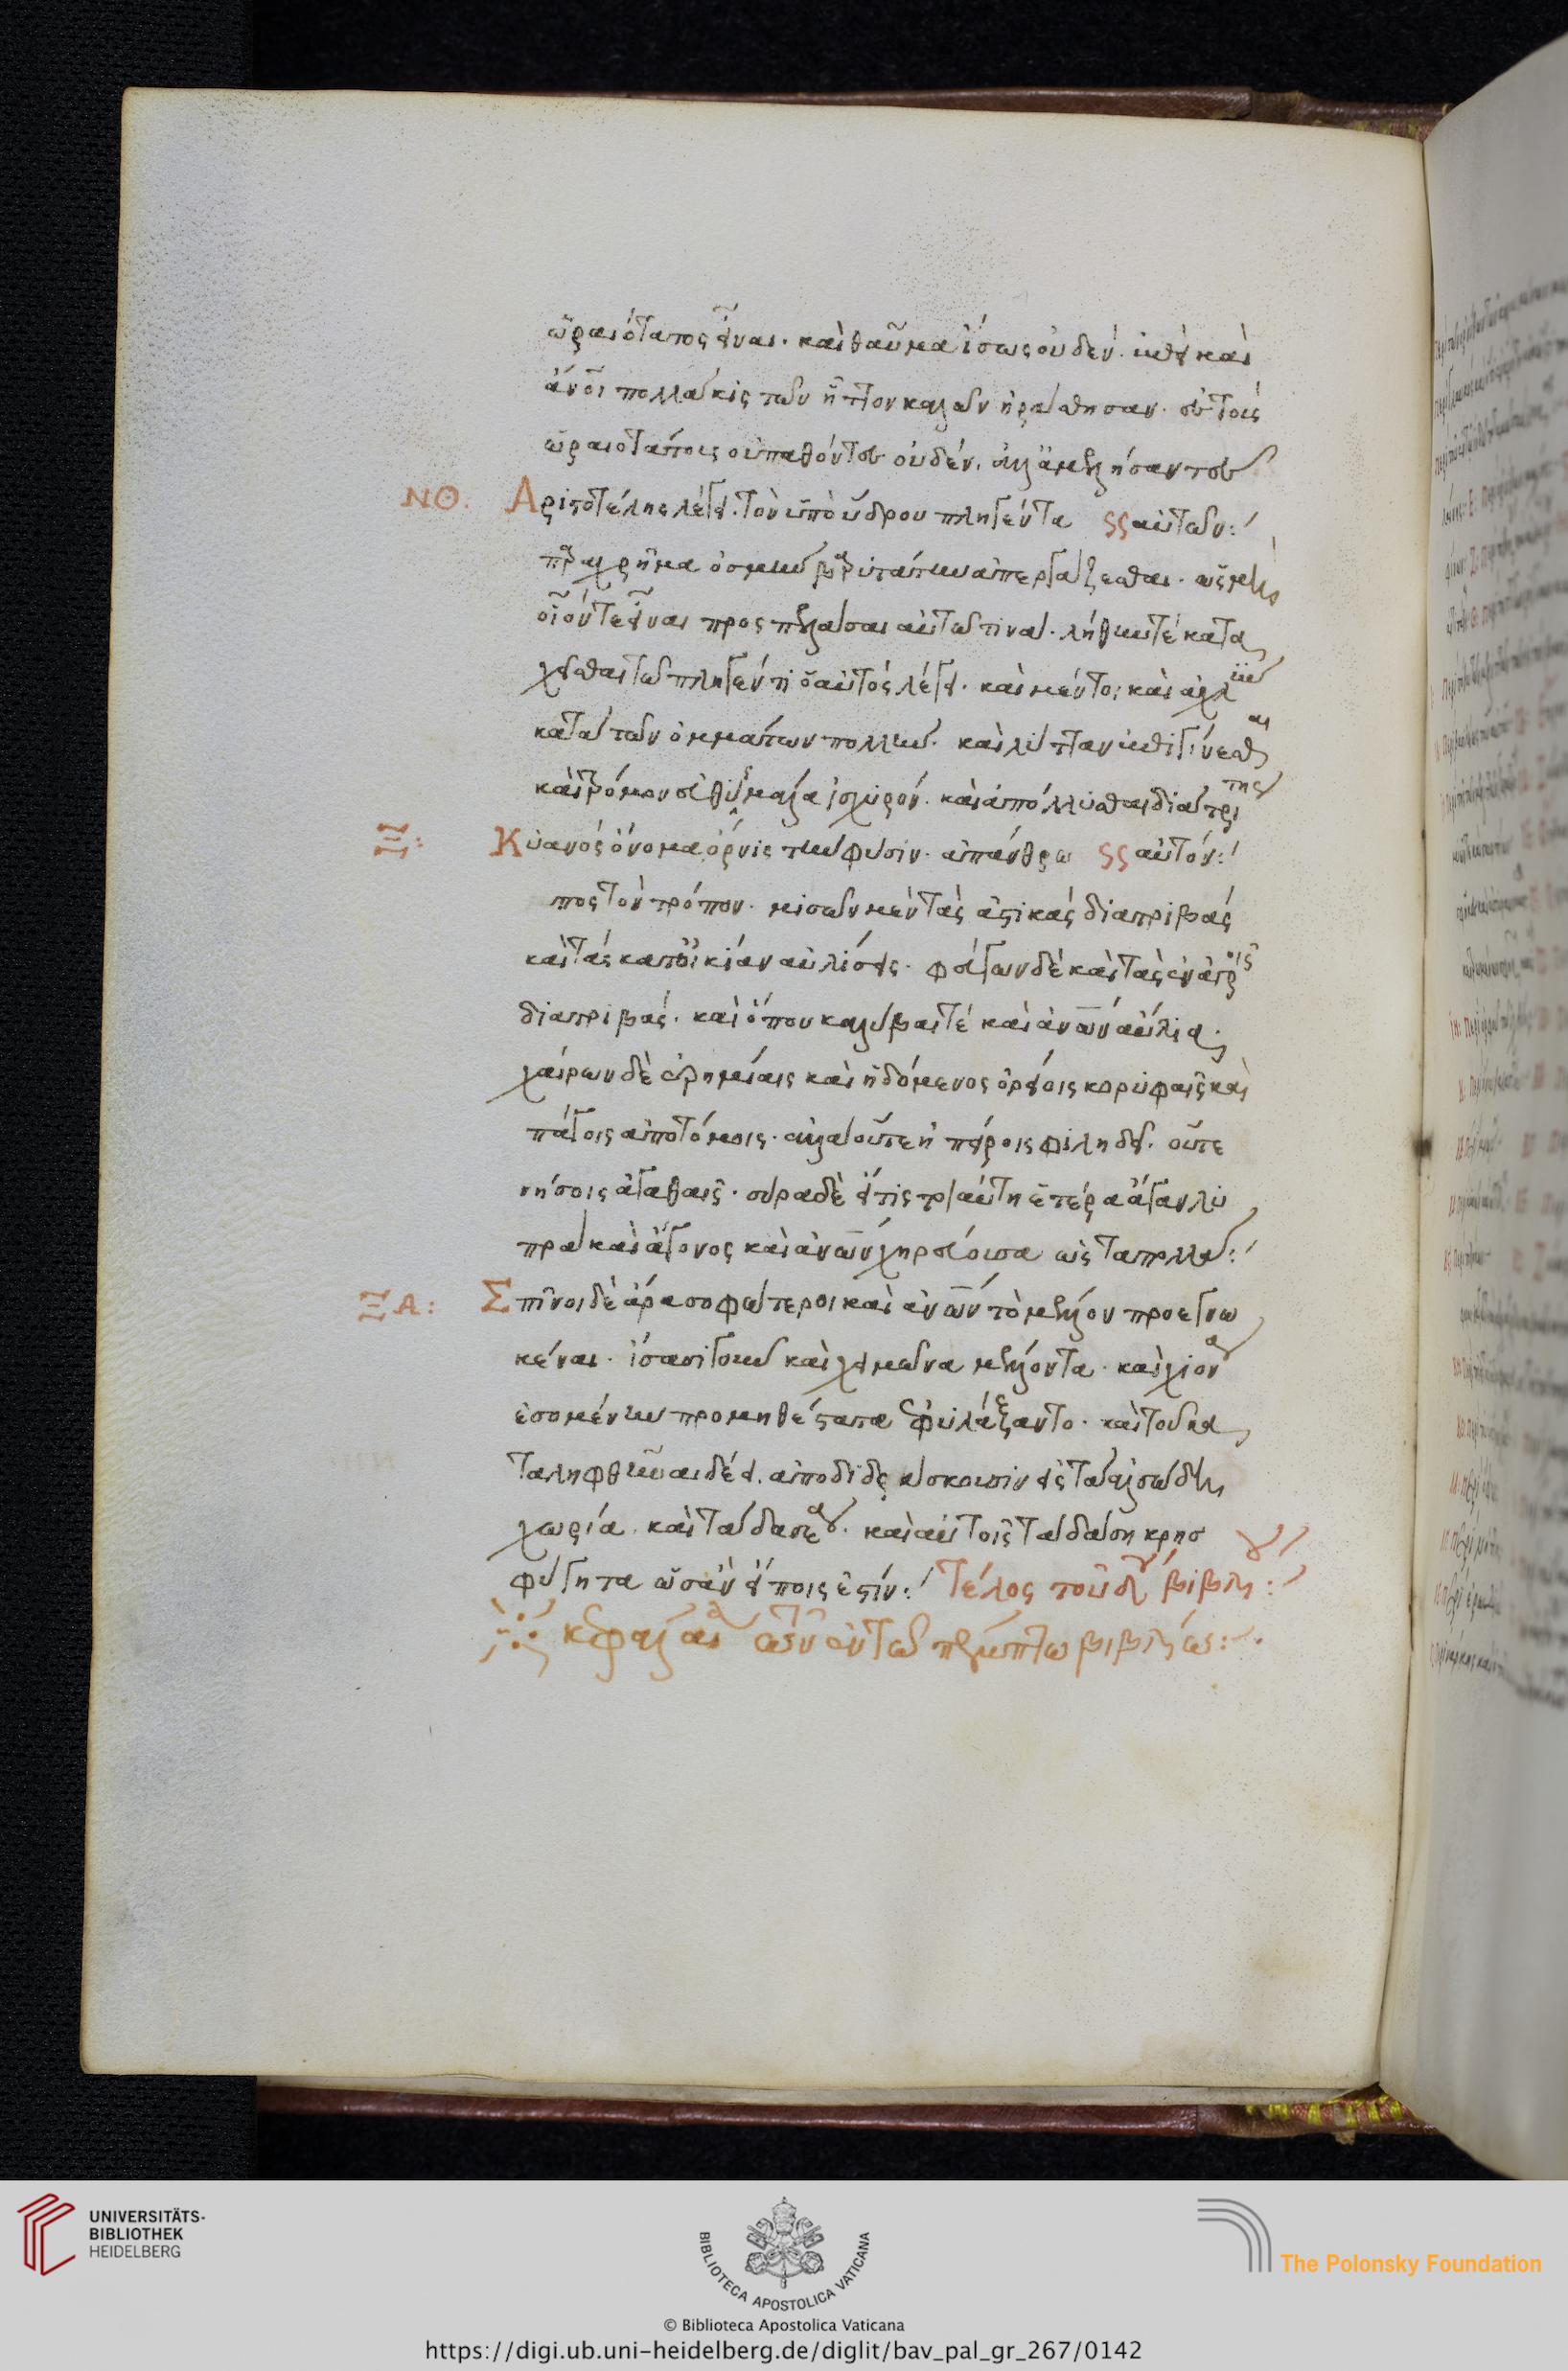 ὡραιότατος εἶναι· καὶ θαῦμα ἴσως οὐδέν· ἐπεὶ καὶ
ἄνοι πολλάκις τῶν ἧττον καλῶν ἠράσθησαν· ἐν τοῖς
ὡραιοτάτοις οὐ παθόντες οὐδέν· ἀλλ' ἀμελήσαντες
ΝΘ. Ἀριστοτέλης λέγει· τὸν ὑπὸ ὕδρου πληγέντα ςς αὐτῶν:
παραχρῆμα ὀσμὴν βαρυτάτην ἀπεργάζεσθαι· ὡς μὴ
οἷόν τε εἶναι προσπελάσαι αὐτῷ τινά· λήθην τὲ κατα
χεῖσθαι τῷ πληγέντι ὁ αὐτὸς λέγει· καὶ μέντοι καὶ ἀχλὺν
κατὰ τῶν ὀμμάτων πολλήν· καὶ λύτταν ἐπιγίνεσθαι
καὶ τρόμον εὐθὺ μάλα ἰσχυρόν· καὶ ἀπόλλυσθαι διὰ τρίτης
Ξ: Κύανος ὄνομα ὄρνις τὴν φύσιν· ἀπάνθρω ςς αὐτόν:
πος τὸν τρόπον· μισῶν μὲν τὰς ἀστικὰς διατριβὰς
καὶ τὰς κατ' οἰκίαν αὐλίσεις· φεύγων δὲ καὶ τὰς ἐν ἀγροῖς
διατριβάς· καὶ ὅπου καλύβαι τὲ καὶ ἀνων αὔλια·
χαίρων δὲ ἐρημίαις καὶ ἡδόμενος ὀρείοις κορυφαῖς καὶ
πάγοις ἀποτόμοις· ἀλλ' οὔτε ἠπείροις φιληδεῖ· οὔτε
νήσοις ἀγαθαῖς·
πρὰ καὶ ἄγονος καὶ ἀνων χηρεύουσα ὡς τὰ πολλά:
ΞΑ: Σπίνοι δὲ ἄρα σοφώτεροι καὶ ἀνων τὸ μέλλον προεγνω
κέναι· ἴσασι γοῦν καὶ χειμῶνα μέλλοντα· καὶ χιόνα
ἐσομένην προμηθέστατα ἐφυλάξαντο· καὶ τοῦ κα
ταληφθῆναι δέει· ἀποδιδράσκουσιν εἰς τὰ ἀλσώδη
χωρία· καὶ τὰ δασέα· καὶ αὐτοῖς τὰ δάση κρησ
φύγητα ὡς ἂν εἴποις ἐστίν: Τέλος τοῦ δ' βιβλίου:
κεφάλαια τῶν ἐν τῷ πέμπτω βιβλίω:
UNIVERSITÄTS-
BIBLIOTHEK
HEIDELBERG
BIBLIOTECA APOSTOLICA VATICANA
The Polonsky Foundation
© Biblioteca Apostolica Vaticana
https://digi.ub.uni-heidelberg.de/diglit/bav_pal_gr_267/0142